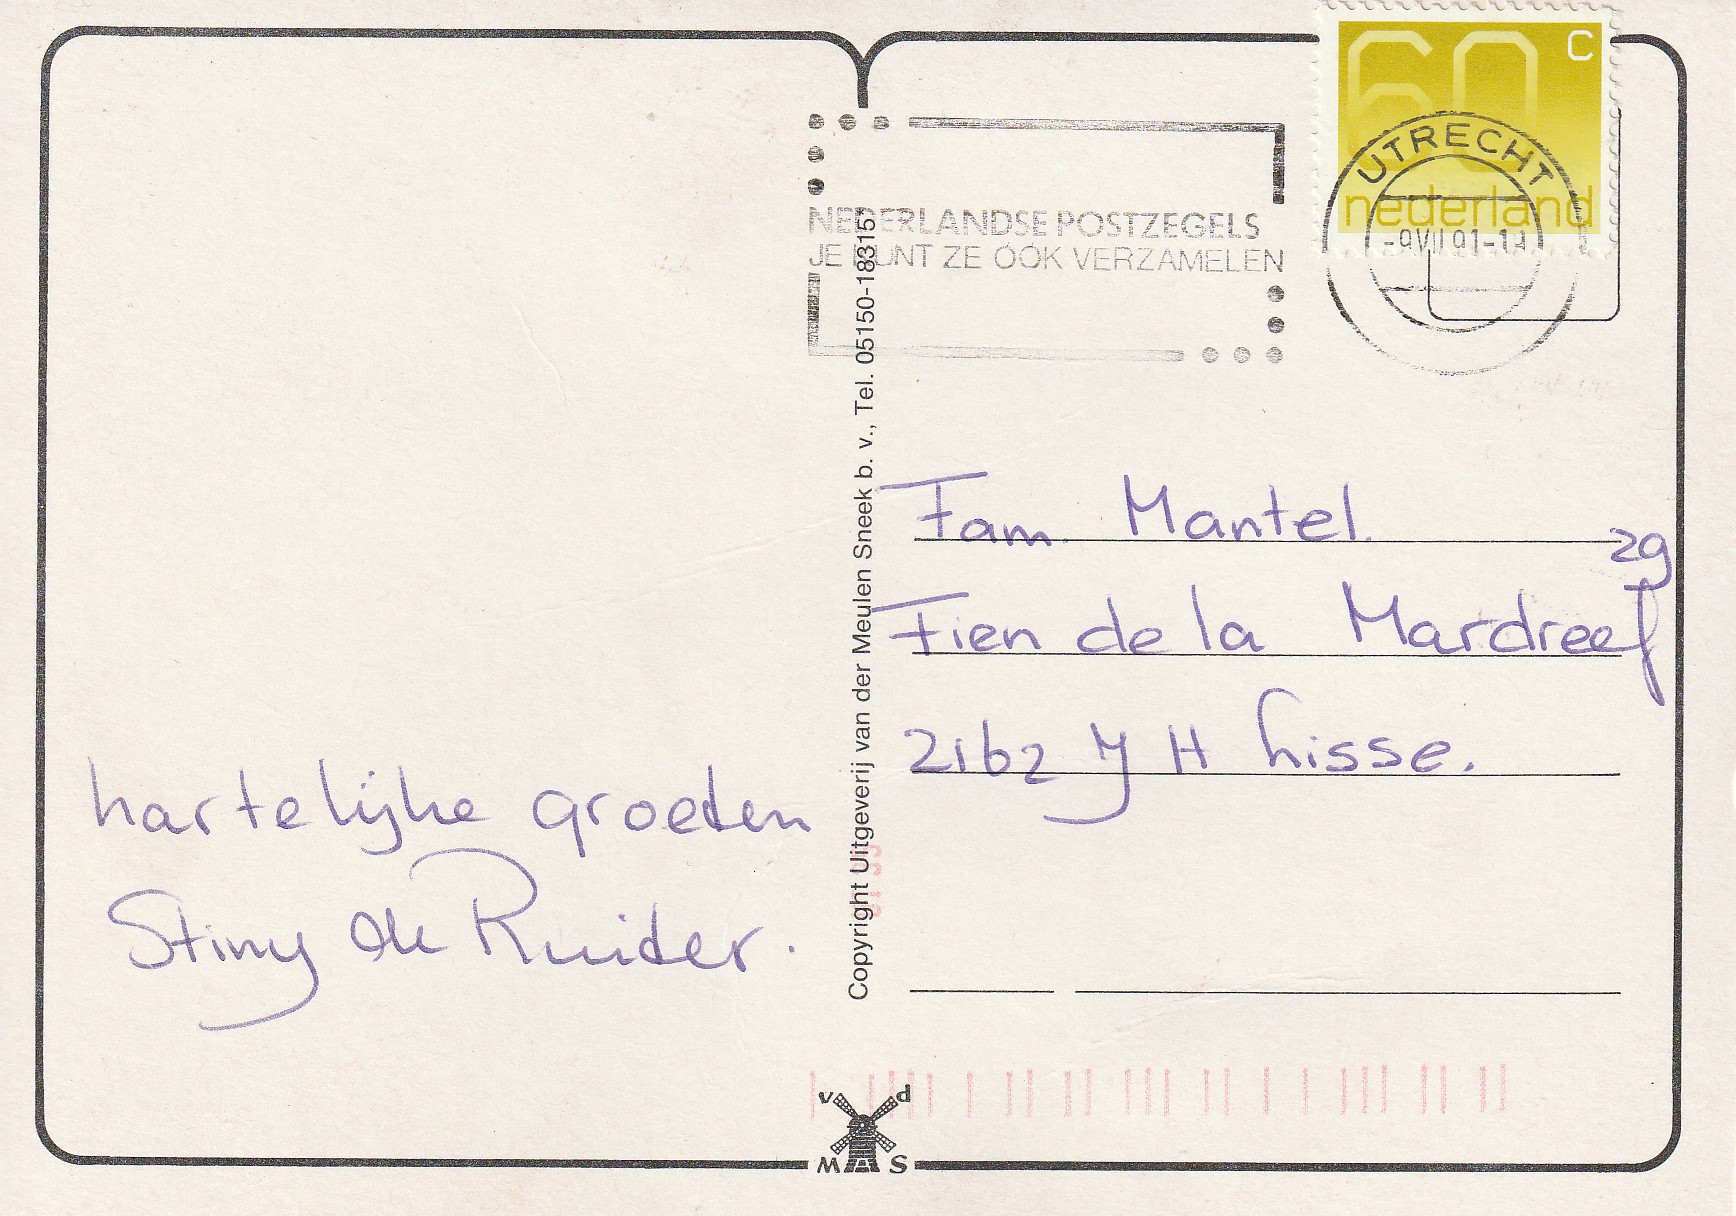 60 C
nederland
UTRECHT
NEDERLANDSE POSTZEGELS
JE KUNT ZE OOK VERZAMELEN
Fam. Mantel.
29
Fien de la Mardreef
2162 JH Lisse.
hartelijke groeten
Stiny de Ruiter.
Copyright Uitgeverij van der Meulen Sneek b. v., Tel. 05150-18315*
v d
M S